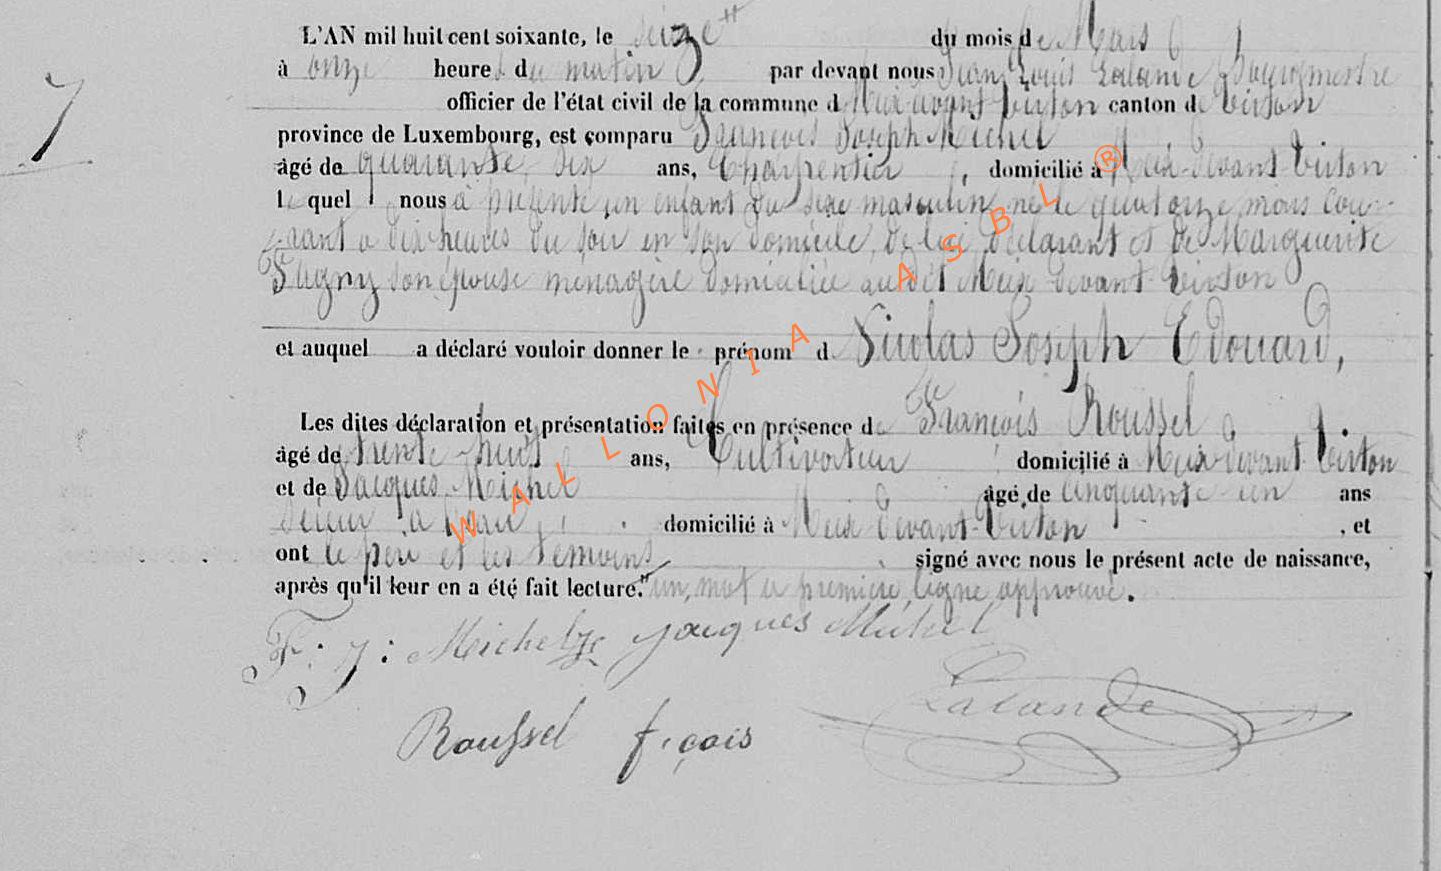 L'AN mil huit cent soixante, le seize" du mois de Mars
7
à onze heures du matin par devant nous Jean Louis Lalande Bourgmestre
officier de l'état civil de la commune d Meix devant Virton canton de Virton
province de Luxembourg, est comparu François Joseph Michel
âgé de quarante six ans, Charpentier, domicilié à Meix-devant Virton
le quel nous à présenté un enfant du sexe masculin, né le quatorze mois cou-
rant à dix heures du soir en son domicile, de lui déclarant et de Marguerite
Pugny son épouse ménagère domiciliée audit Meix-devant-Virton
et auquel a déclaré vouloir donner le prénom d Nicolas Joseph Edouard,
Les dites déclaration et présentation faites en présence de François Roussel
âgé de trente-huit ans, Cultivateur domicilié à Meix-devant-Virton
et de Jacques Michel âgé de cinquante un ans
scieur à domicilié à Meix devant-Virton, et
ont le père et les témoins signé avec nous le présent acte de naissance,
après qu'il leur en a été fait lecture." un mot à première ligne approuvé.
F: J: Michel jacques Michel
Lalande
Roussel fçois
WALLONIA ASBL ®